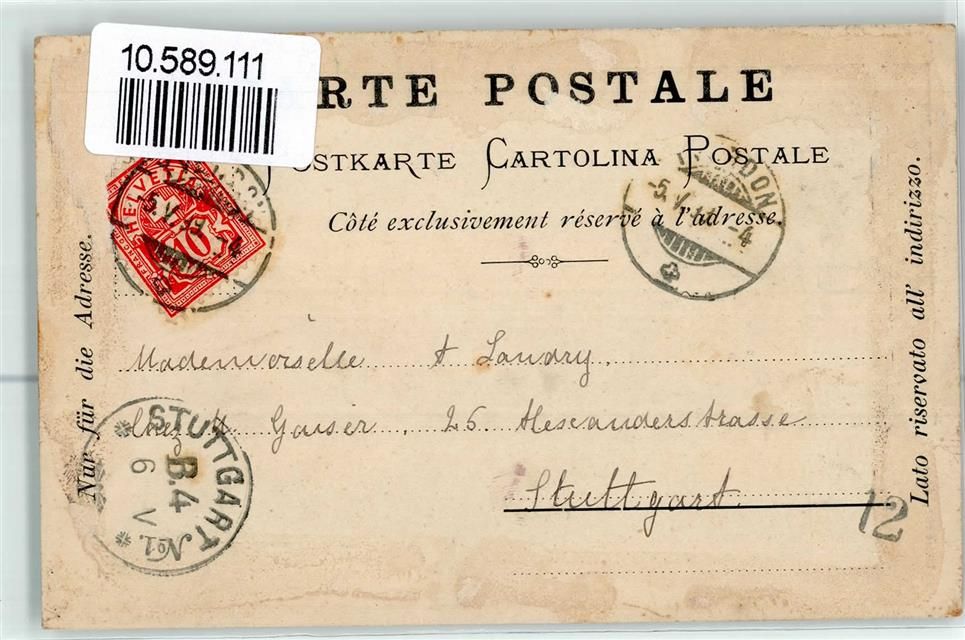 10.589.111
RTE POSTALE
POSTKARTE CARTOLINA POSTALE
Côté exclusivement réservé à l'adresse.
Nur für die Adresse.
Lato riservato all' indirizzo.
HELVETIA
10
5.V.
DON
-5.V.
-4
Mademoiselle A Landry.
Chez M Gaiser, 25 Alexanderstrasse
Stuttgart
STUTTGART No1.
B.4
6 V
12